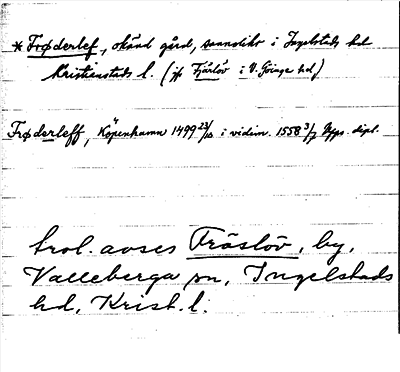 * Frøderlef, okänd gård, sannolikt i Ingelstads hd
Kristianstads l. (jfr Fjärlöv i V. Göinge hd)
Frøderleff, Köpenhamn 1499 23/10 i vidim. 1558 3/7 Upps. dipl.
trol. avses Fröslöv, by,
Valleberga sn, Ingelstads
hd, Krist. l.